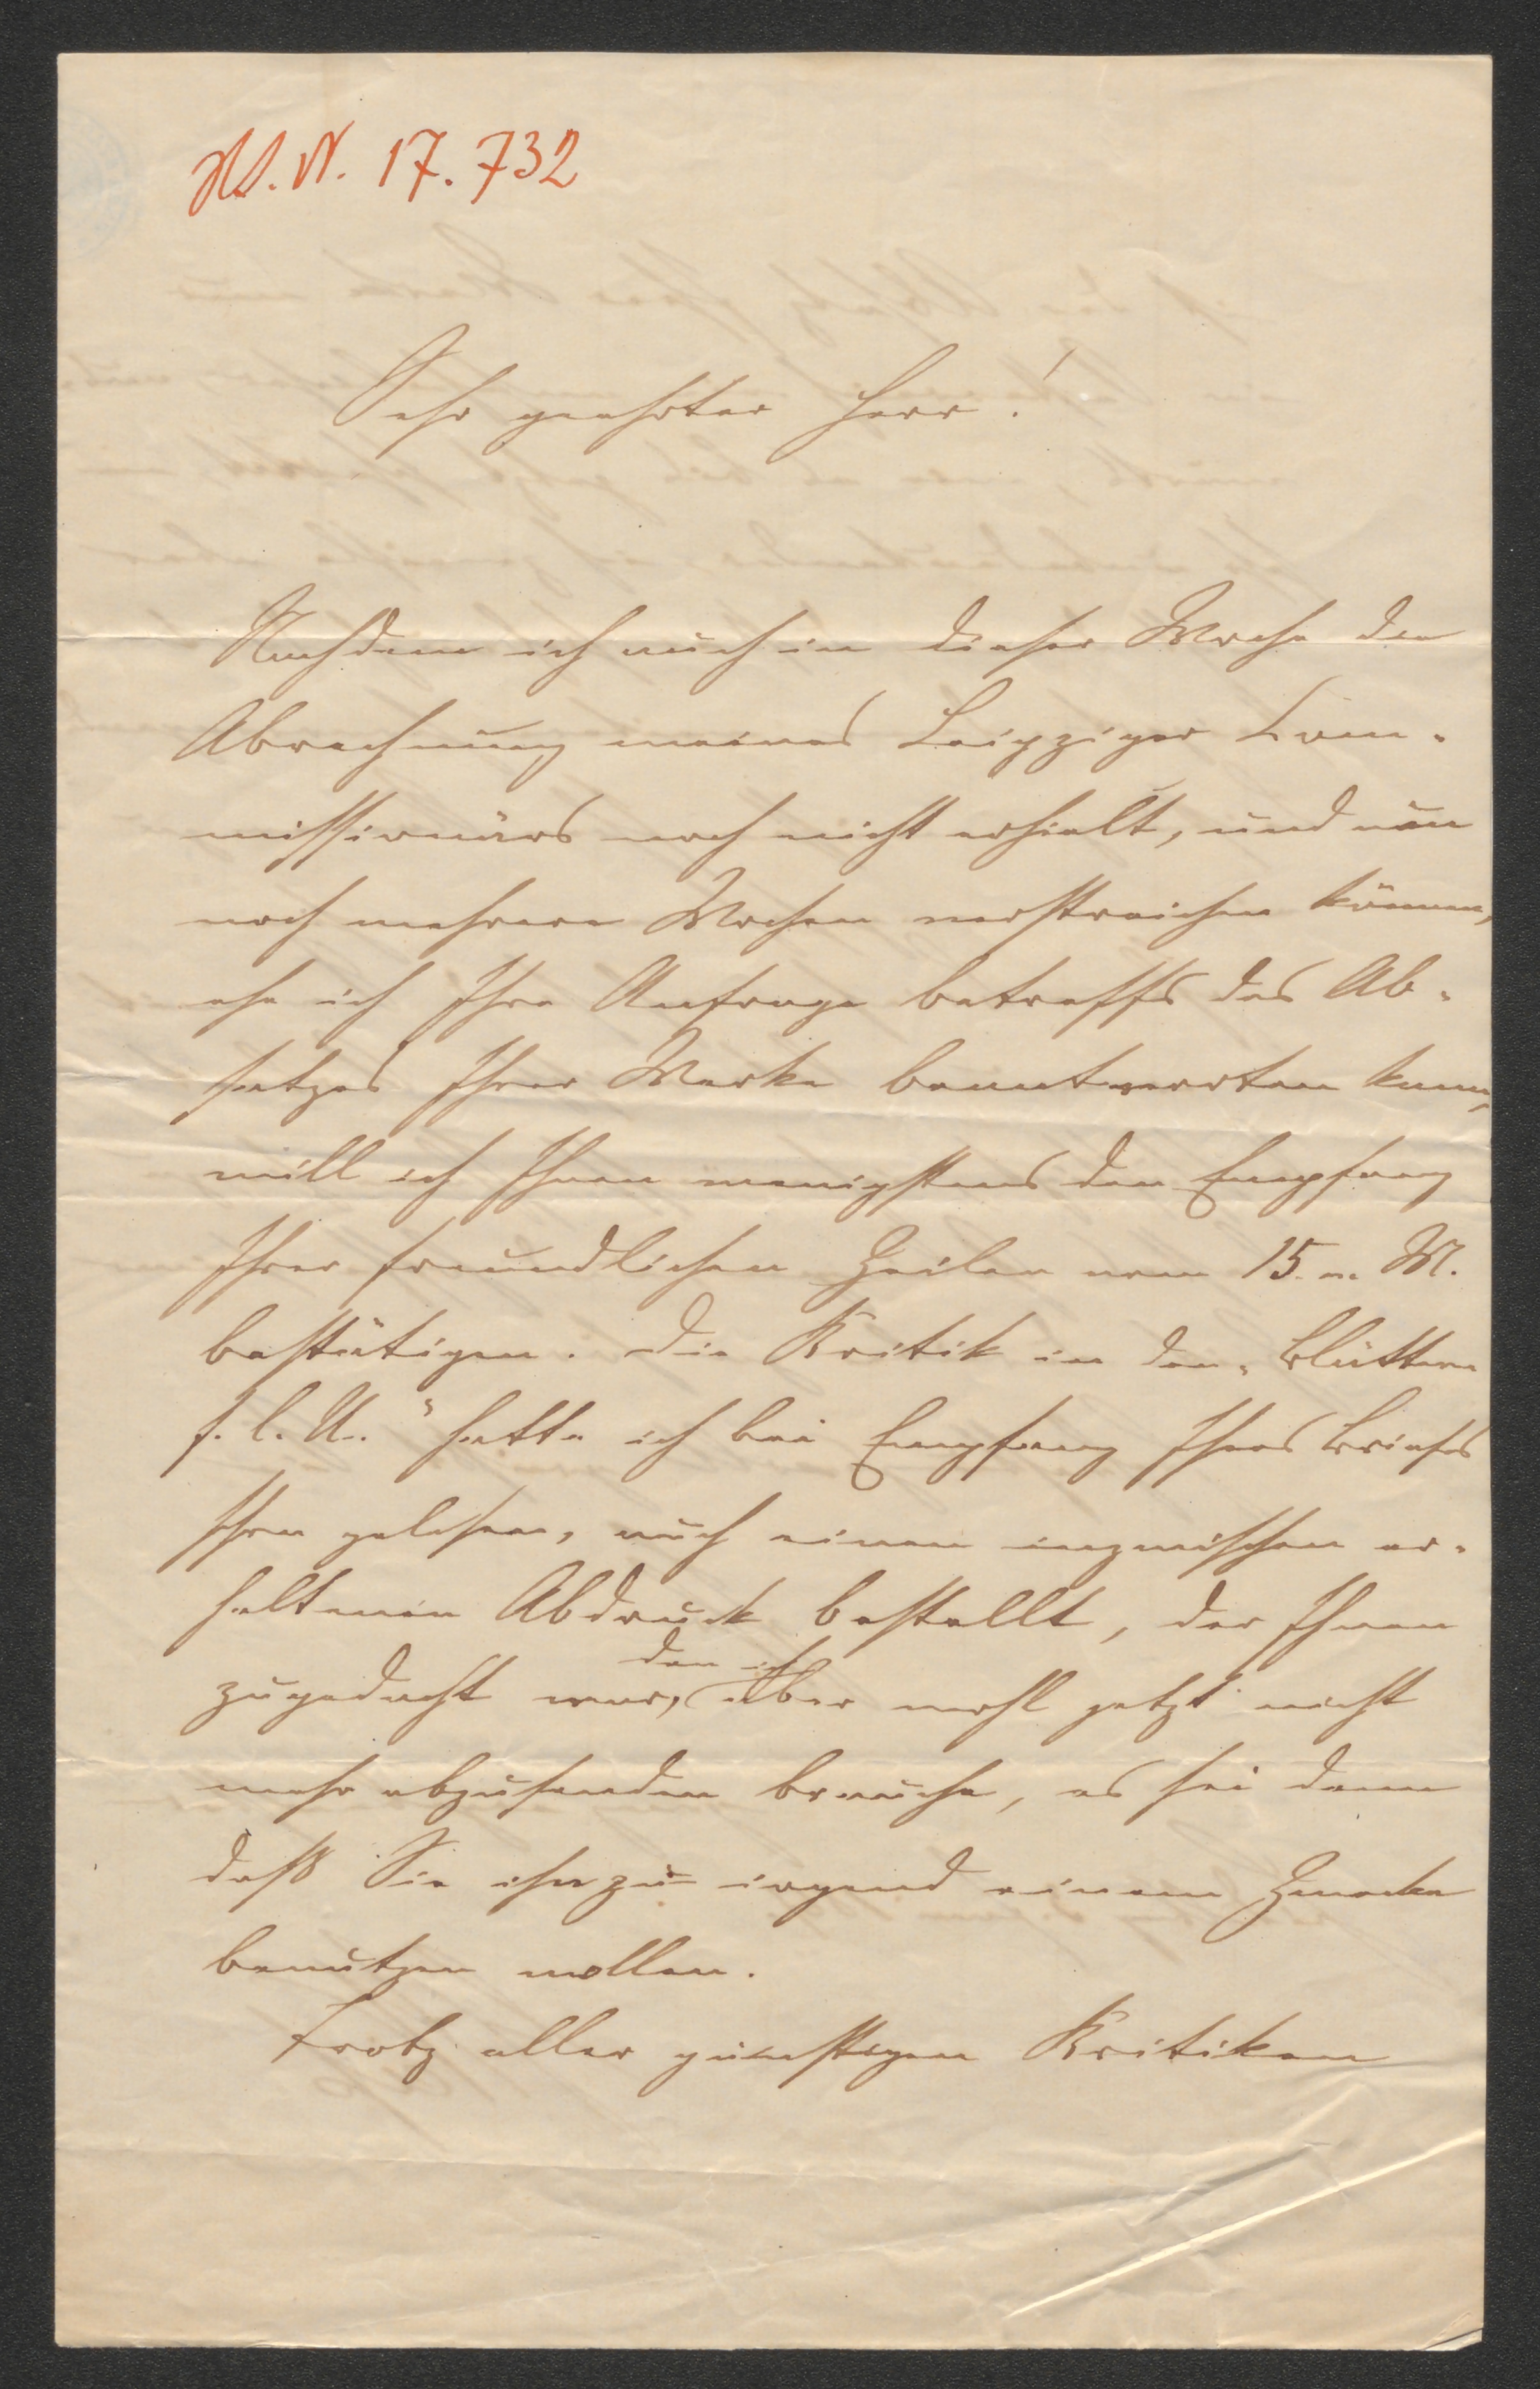 H.I.N. 17.732
Sehr geehrter Herr!
Nachdem ich auch in dieser Woche die
Abrechnung meines Leipziger Com-
missionärs noch nicht erhielt, und nun
noch mehrere Wochen verstreichen können,
ehe ich Ihre Anfrage betreffs des Ab-
satzes Ihrer Werke beantworten kann,
will ich Ihnen wenigstens den Empfang
Ihrer freundlichen Zeilen vom 15. v. M.
bestätigen. Die Kritik in den „Blättern
f. l. U." hatte ich bei Empfang Ihres Briefes
schon gelesen, auch einen inzwischen er-
haltenen Abdruck bestellt, der Ihnen
zugedacht war, den ich aber wohl jetzt nicht
mehr abzusenden brauche, es sei denn
daß Sie ihn zu irgend einem Zwecke
benutzen wollen.
Trotz aller günstigen Kritiken